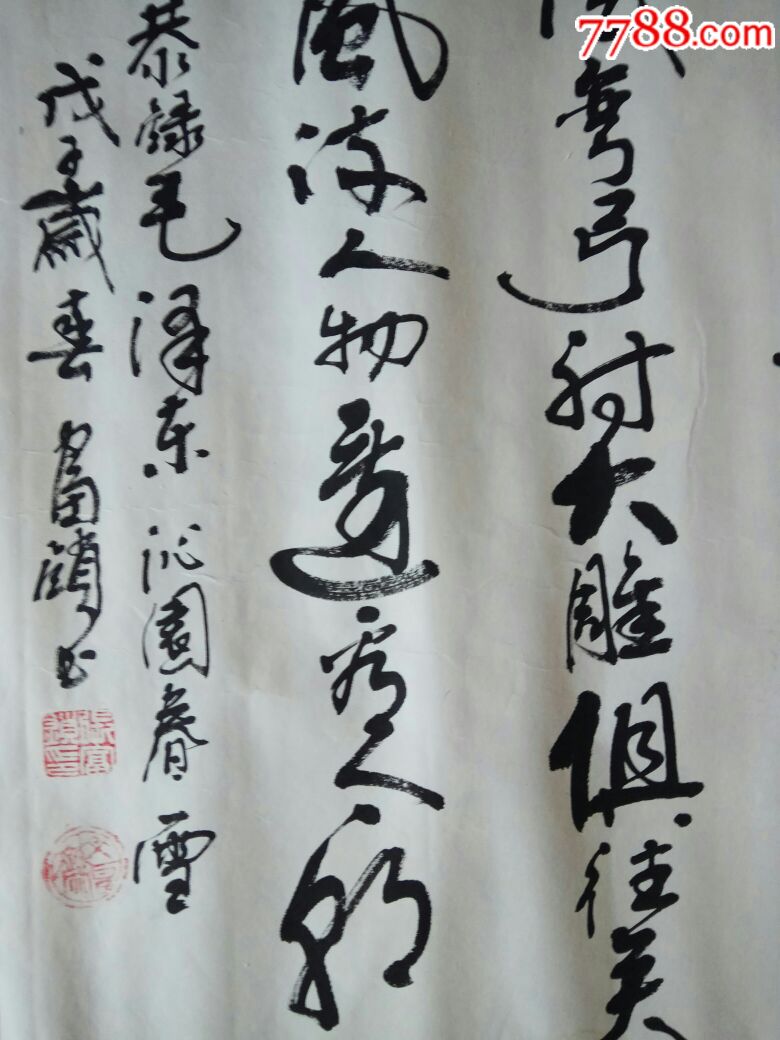 7788.com
弯弓射大雕俱往矣
風流人物還看今朝
恭録毛泽东沁園春雪
戊子歲春富书